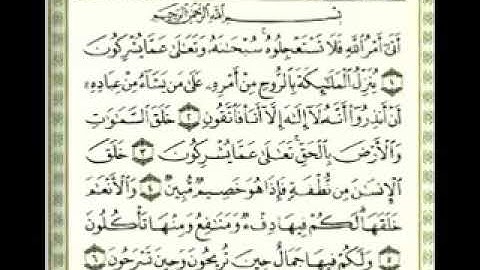 بِسْمِ اللَّهِ الرَّحْمَٰنِ الرَّحِيمِ
أَتَىٰٓ أَمْرُ ٱللَّهِ فَلَا تَسْتَعْجِلُوهُ ۚ سُبْحَٰنَهُۥ وَتَعَٰلَىٰ عَمَّا يُشْرِكُونَ
١ يُنَزِّلُ ٱلْمَلَٰٓئِكَةَ بِٱلرُّوحِ مِنْ أَمْرِهِۦ عَلَىٰ مَن يَشَآءُ مِنْ عِبَادِهِۦٓ
أَنْ أَنذِرُوٓا۟ أَنَّهُۥ لَآ إِلَٰهَ إِلَّآ أَنَا۠ فَٱتَّقُونِ ٢ خَلَقَ ٱلسَّمَٰوَٰتِ
وَٱلْأَرْضَ بِٱلْحَقِّ ۚ تَعَٰلَىٰ عَمَّا يُشْرِكُونَ ٣ خَلَقَ
ٱلْإِنسَٰنَ مِن نُّطْفَةٍ فَإِذَا هُوَ خَصِيمٌ مُّبِينٌ ٤ وَٱلْأَنْعَٰمَ
خَلَقَهَا ۗ لَكُمْ فِيهَا دِفْءٌ وَمَنَٰفِعُ وَمِنْهَا تَأْكُلُونَ
٥ وَلَكُمْ فِيهَا جَمَالٌ حِينَ تُرِيحُونَ وَحِينَ تَسْرَحُونَ ٦